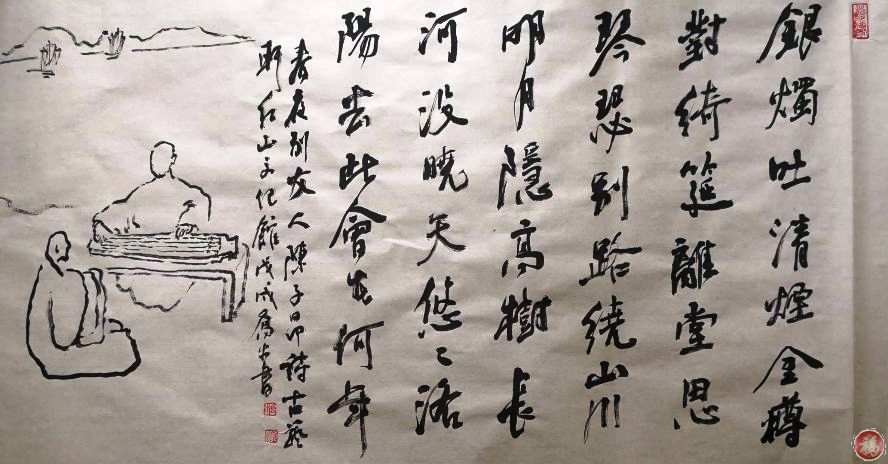 銀燭吐清煙金樽
對綺筵離堂思
琴瑟別路繞山川
明月隱高樹長
河沒曉天悠〻洛
陽去此會在何年
春夜別友人陳子昂詩古藝
軒山文化館戊戌書
福